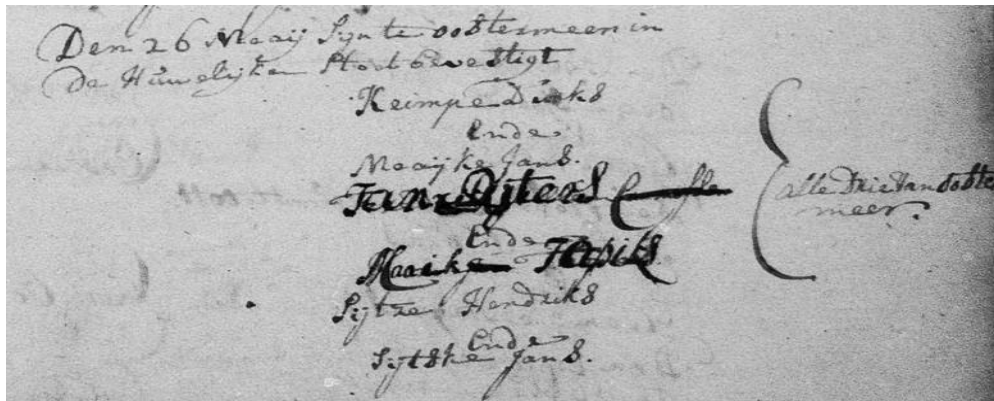 Den 26 Maaij Sijn te oostermeer in
De Huwelijken Staat bevestigt
Keimpe Dirks
Ende
Maaijke Jans.
Jan Sijters
Ende
Maaike
Sijtze Hendriks
Ende
Sijtske Jans.
alle Drie van ooster
meer.